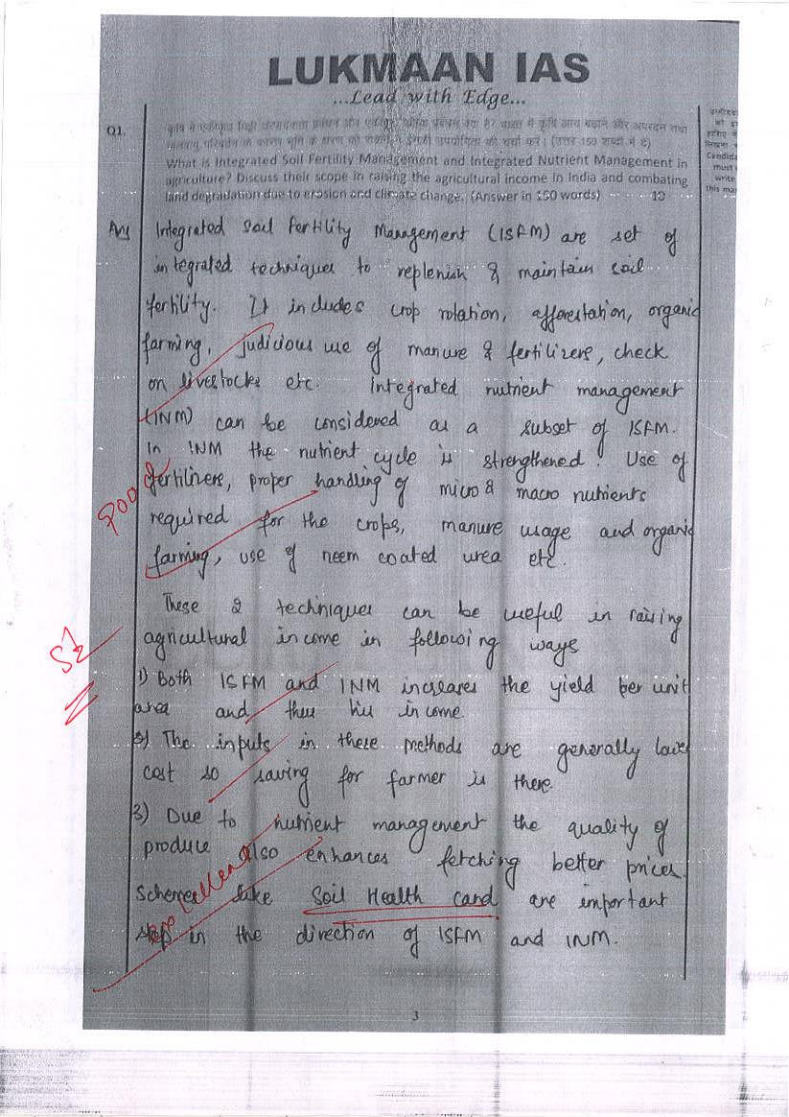 LUKMAAN IAS
...Lead with Edge...
Q1.
What is Integrated Soil Fertility Management and Integrated Nutrient Management in
agriculture? Discuss their scope in raising the agricultural income in India and combating
land degradation due to erosion and climate change. (Answer in 150 words)
Candid
must
write
this ma
Ans Integrated Soil Fertility Management (ISFM) are set of
integrated techniques to replenish & maintain soil
fertility. It includes crop rotation, afforestation, organic
farming, judicious use of manure & fertilizers, check
on livestocks etc. Integrated nutrient management
(INM) can be considered as a subset of ISFM.
In INM the nutrient cycle is strengthened. Use of
fertilizers, proper handling of micro & macro nutrients
Good
required for the crops, manure usage and organic
farming, use of neem coated urea etc.
These 2 techniques can be useful in raising
agricultural income in following ways
5½
1) Both ISFM and INM increases the yield per unit
area and thus his income.
2) The inputs in these methods are generally low
cost so saving for farmer is there.
3) Due to nutrient management the quality of
produce also enhances fetching better prices.
Schemes like Soil Health card are important
step in the direction of ISFM and INM.
3